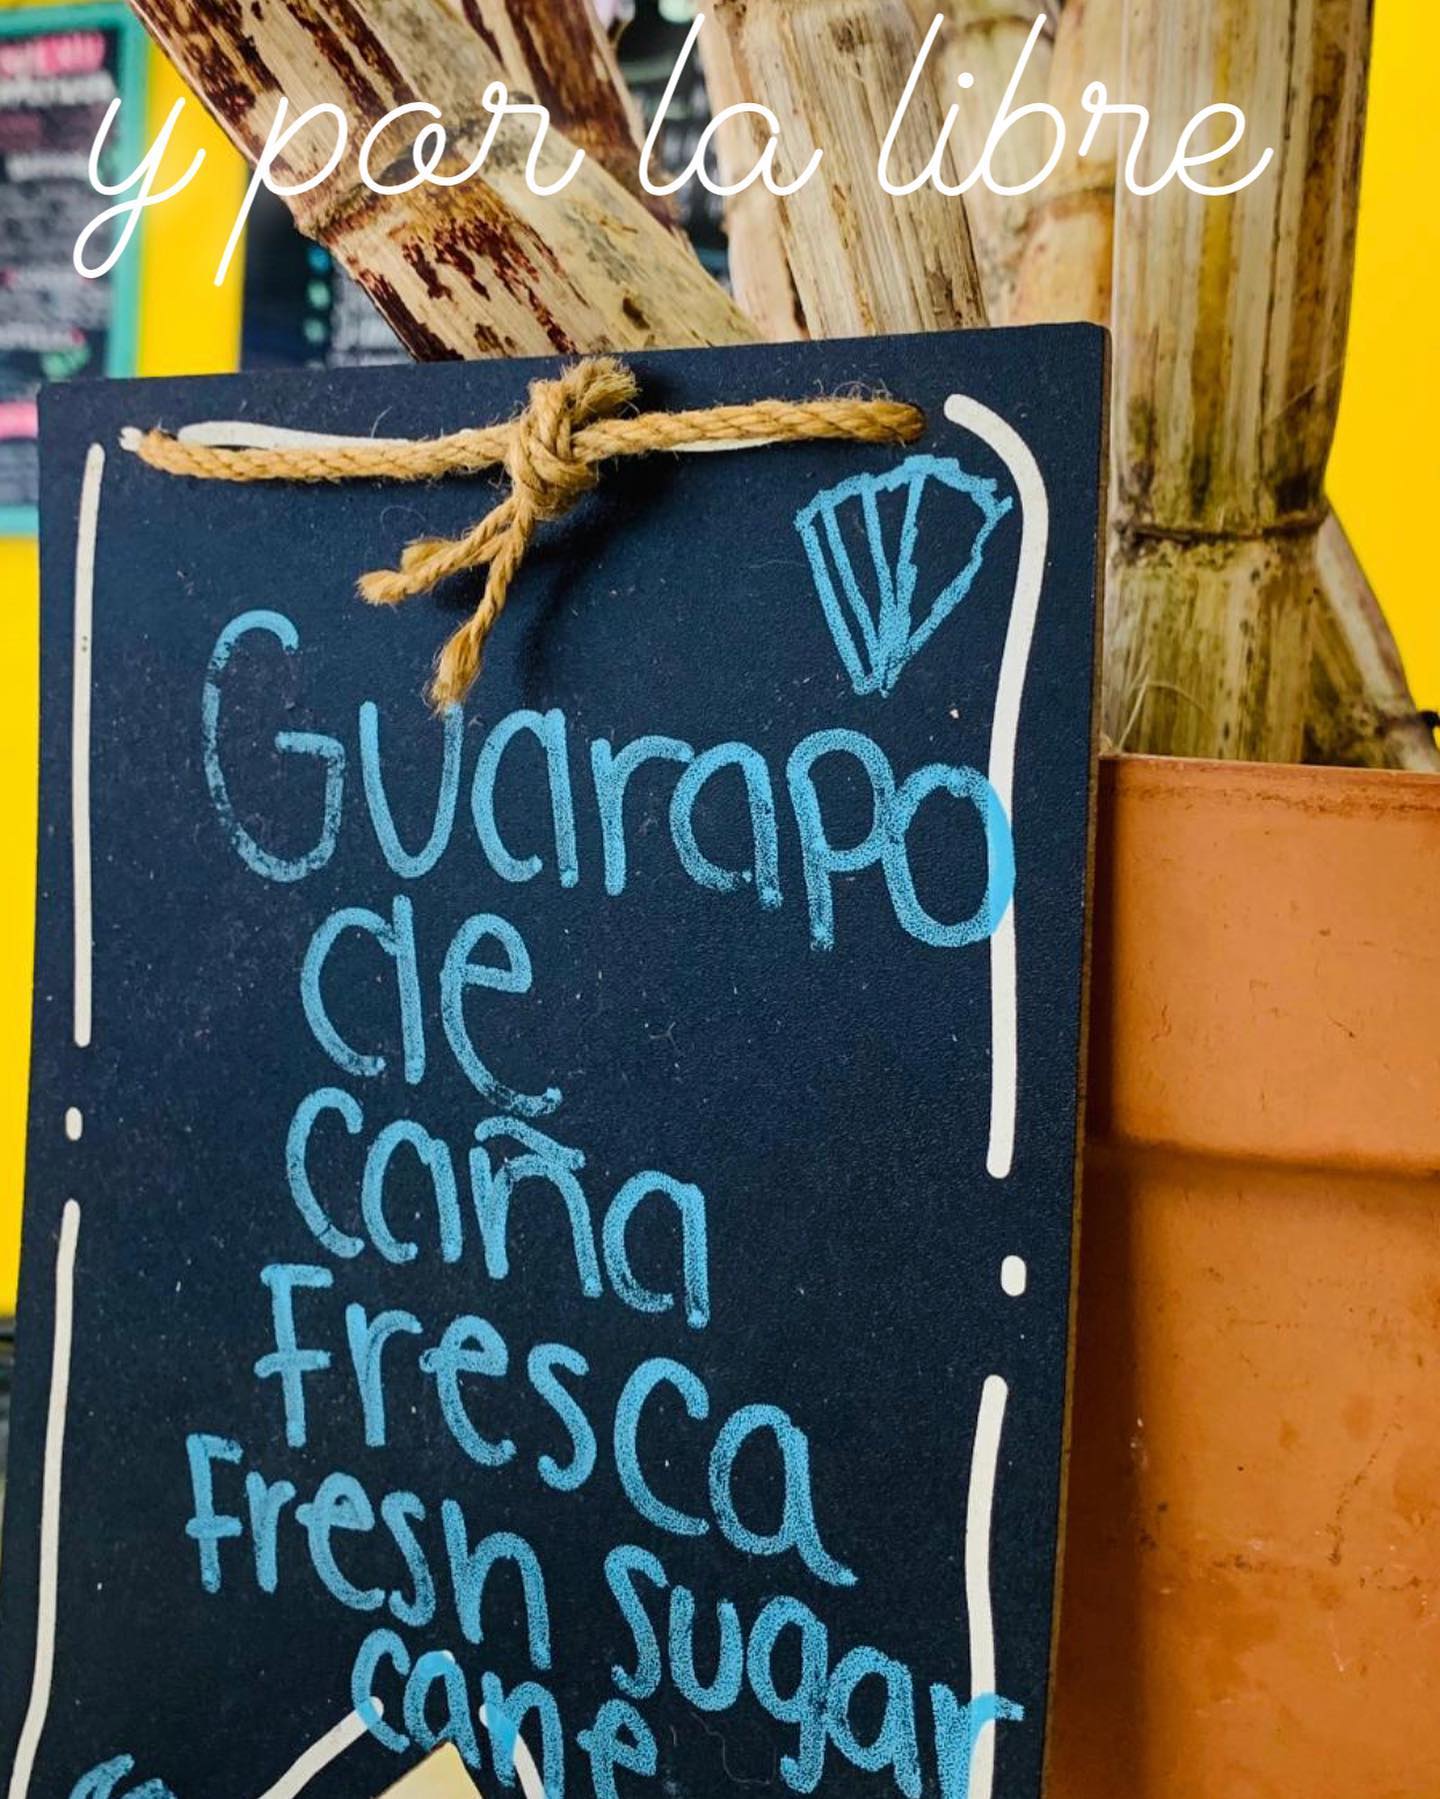 y por la libre
Guarapo
de
caña
Fresca
Fresh sugar
cane